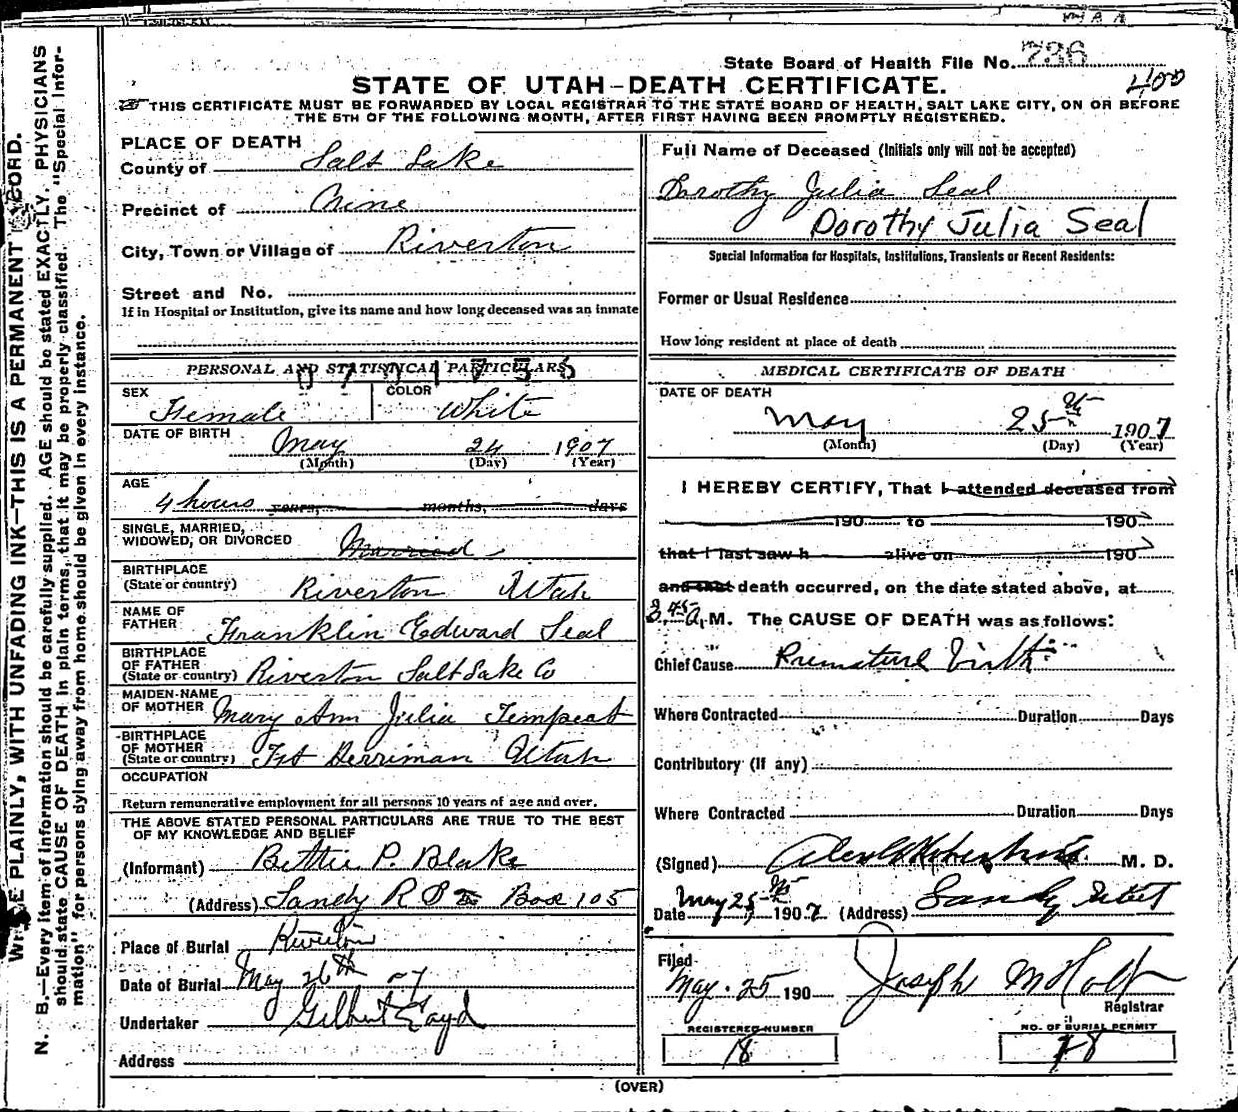 State Board of Health File No. 736
400
STATE OF UTAH—DEATH CERTIFICATE.
THIS CERTIFICATE MUST BE FORWARDED BY LOCAL REGISTRAR TO THE STATE BOARD OF HEALTH, SALT LAKE CITY, ON OR BEFORE
THE 5TH OF THE FOLLOWING MONTH, AFTER FIRST HAVING BEEN PROMPTLY REGISTERED.
PLACE OF DEATH
County of Salt Lake
Precinct of
City, Town or Village of Riverton
Street and No.
If in Hospital or Institution, give its name and how long deceased was an inmate
PERSONAL AND STATISTICAL PARTICULARS
SEX Female
COLOR White
DATE OF BIRTH May 24 1907
(Month) (Day) (Year)
AGE
4 hours years, months, days
SINGLE, MARRIED,
WIDOWED, OR DIVORCED Married
BIRTHPLACE
(State or country) Riverton Utah
NAME OF
FATHER Franklin Edward Seal
BIRTHPLACE
OF FATHER
(State or country) Riverton Salt Lake Co
MAIDEN-NAME
OF MOTHER Mary Ann Julia Tempest
BIRTHPLACE
OF MOTHER
(State or country) Fst Herriman Utah
OCCUPATION
Return remunerative employment for all persons 10 years of age and over.
THE ABOVE STATED PERSONAL PARTICULARS ARE TRUE TO THE BEST
OF MY KNOWLEDGE AND BELIEF
(Informant) Bettie P. Blake
(Address) Sandy R Box 105
Place of Burial Riverton
Date of Burial May 26th 07
Undertaker Gilbert
Address
Full Name of Deceased (Initials only will not be accepted)
Dorothy Julia Seal
Dorothy Julia Seal
Special Information for Hospitals, Institutions, Transients or Recent Residents:
Former or Usual Residence
How long resident at place of death
MEDICAL CERTIFICATE OF DEATH
DATE OF DEATH
May 25th 1907
(Month) (Day) (Year)
I HEREBY CERTIFY, That I attended deceased from
190 to 190
that I last saw h alive on 190
and that death occurred, on the date stated above, at
3.45 A.M. The CAUSE OF DEATH was as follows:
Chief Cause Premature Birth
Where Contracted Duration Days
Contributory (If any)
Where Contracted Duration Days
(Signed) M. D.
Date May 25th 1907 (Address) Sandy
Filed
May. 25 190 Joseph M Holt
Registrar
REGISTERED NUMBER
18
NO. OF BURIAL PERMIT
18
(OVER)
WRITE PLAINLY, WITH UNFADING INK—THIS IS A PERMANENT RECORD.
N. B.—Every item of information should be carefully supplied. AGE should be stated EXACTLY. PHYSICIANS
should state CAUSE OF DEATH in plain terms, that it may be properly classified. The "Special Infor-
mation" for persons dying away from home should be given in every instance.